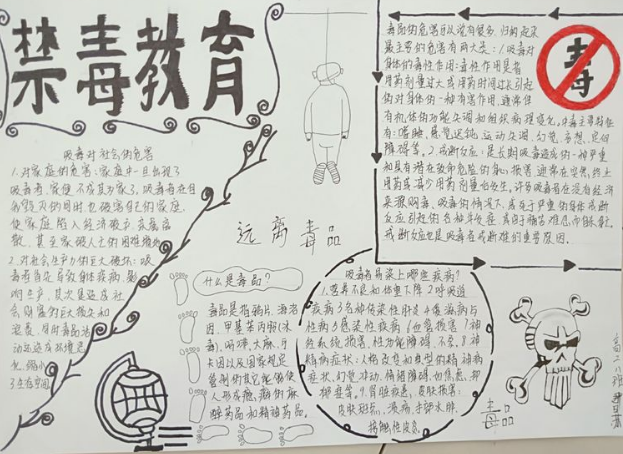 禁毒教育
吸毒对社会的危害
1.对家庭的危害:家庭中一旦出现了
吸毒者,家便不成其为家了。吸毒者在自
我毁灭的同时也破害自己的家庭,
使家庭陷入经济破产、亲属离
散、甚至家破人亡的困难境地
2.对社会生产力的巨大破坏:吸
毒首先导致身体疾病,影
响生产,其次是造成社
会财富的巨大损失和
浪费,同时毒品活
动还造成环境恶
化,缩小
了生存空间
远离毒品
什么是毒品?
毒品是指鸦片、海洛
因、甲基苯丙胺(冰
毒)、吗啡、大麻、可
卡因以及国家规定
管制的其它能够使
人形成瘾癖的麻
醉药品和精神药品。
毒品的危害可以说有很多,归纳起来
最主要的危害有两大类:1.吸毒对
身体的毒性作用:毒性作用是指
用药剂量过大或用药时间过长引起
的对身体的一种有害作用,通常伴
有机体的功能失调和组织病理变化。中毒主要特征
有:嗜睡、感觉迟钝、运动失调、幻觉、妄想、定向
障碍等。2.戒断反应:是长期吸毒造成的一种严重
和具有潜在致命危险的身心损害,通常在突然终止
用药或减少用药剂量后发生。许多吸毒者在没有经济
来源购毒、吸毒的情况下,或死于严重的身体戒断
反应引起的各种并发症,或由于痛苦难忍而自杀。
戒断反应也是吸毒者戒断难的重要原因。
毒
吸毒者易染上哪些疾病?
1.营养不良和体重下降 2.呼吸道
疾病 3.各种传染性肝炎 4.艾滋病与
性病 5.感染性疾病 6.血管损害 7.神
经系统损害、性功能障碍、不孕。8.精
神病症状:人格改变和典型的精神病
症状,幻觉、冲动、情绪障碍,如焦虑、抑
郁症等。9.肾脏疾患。皮肤损害:
皮肤斑疹、溃疡、手部水肿、
接触性皮炎
毒品